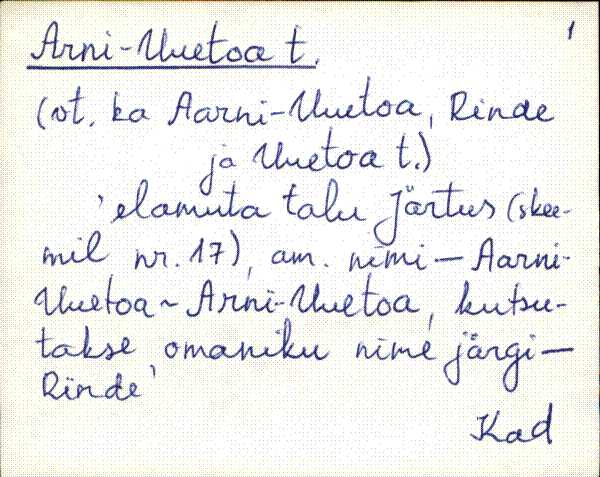 1
Arni-Uuetoa t.
(vt. ka Aarni-Uuetoa, Rinde
ja Uuetoa t.)
'elamuta talu Järtus (skee-
mil nr. 17), am. nimi — Aarni-
Uuetoa ~ Arni-Uuetoa, kutsu-
takse omaniku nime järgi —
Rinde'
Kad